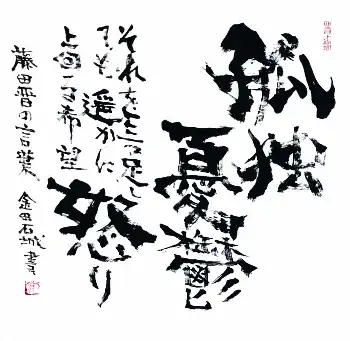 孤独
憂鬱
怒り
それを三つ足し
ても遥かに
上回る希望
藤田晋の言葉 金田石城書